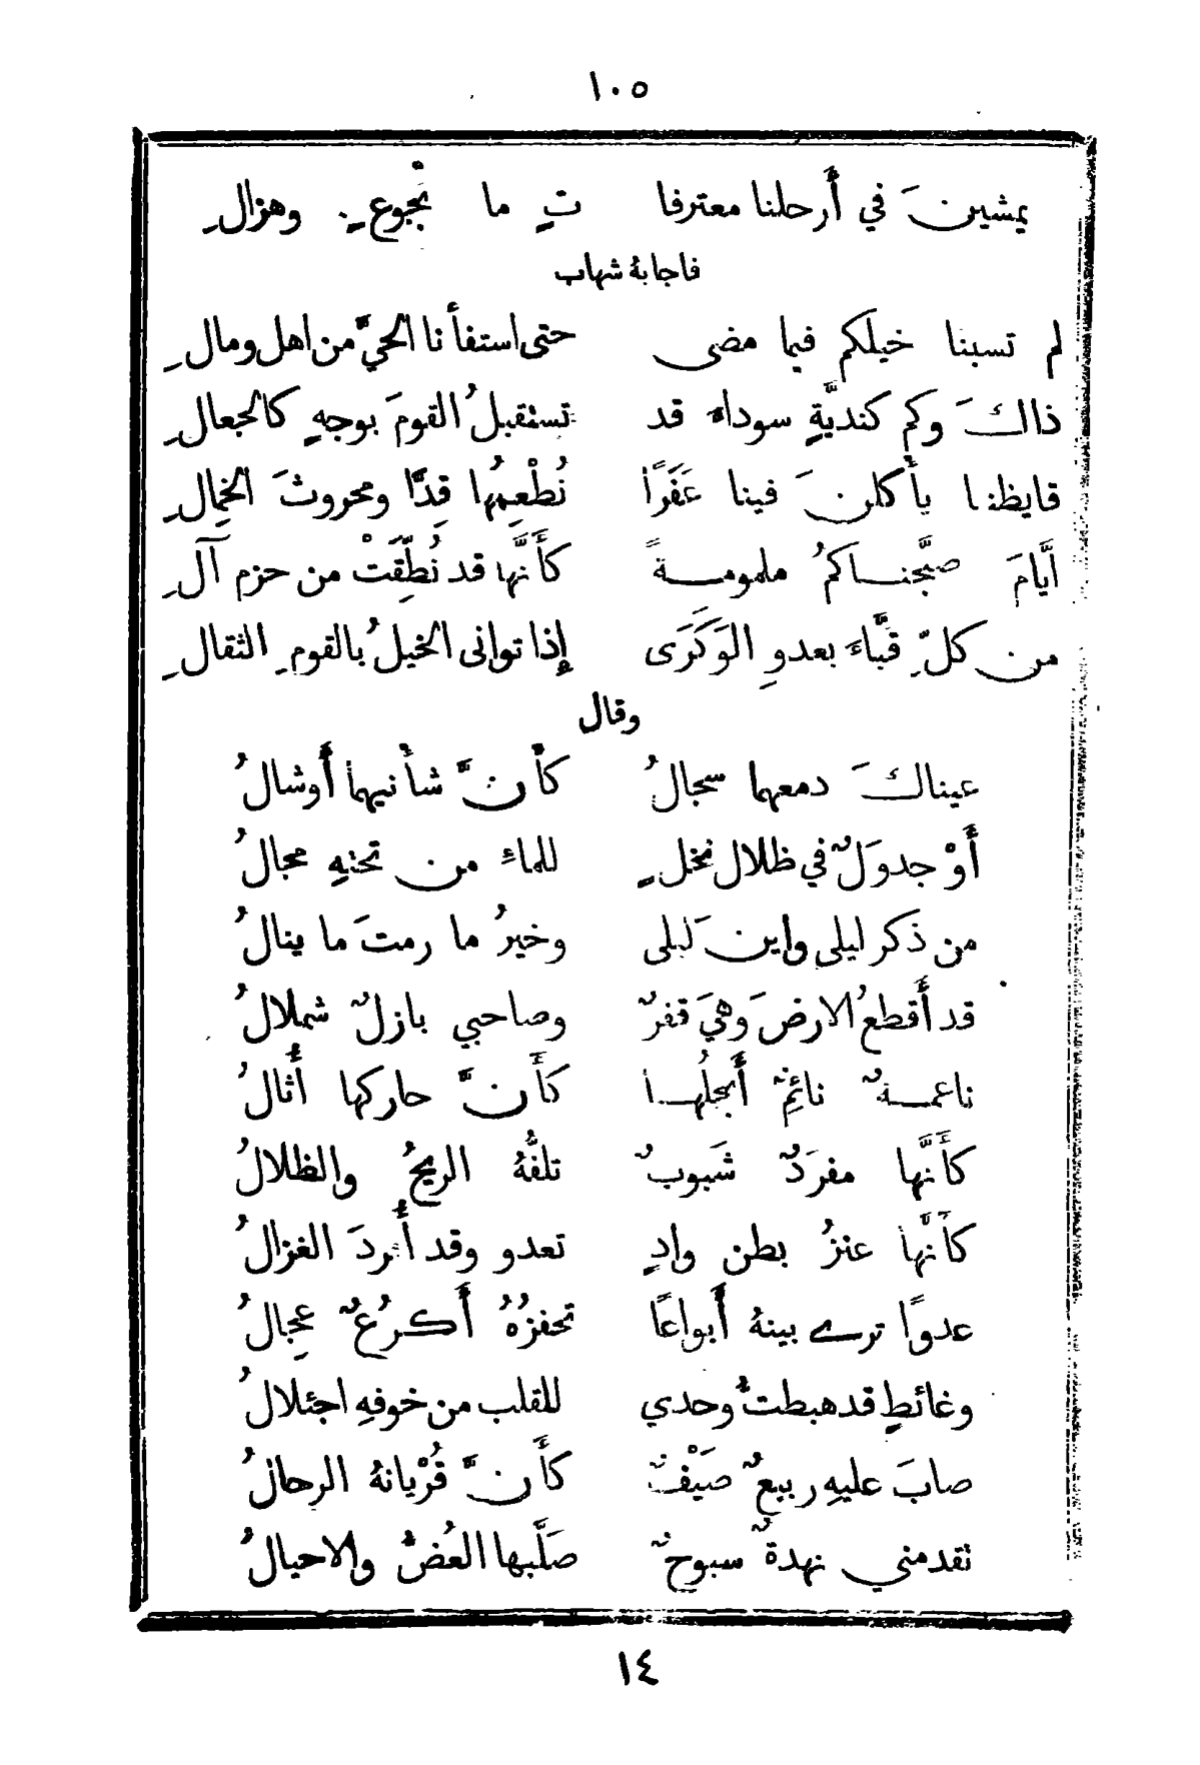 ١٠٥
يمشينَ في أَرحلنا معترفا تٍ ما بجوعٍ وهزالِ
فاجابهُ شهاب
لم تسبنا خيلكم فيما مضى حتى استفأنا الحيَّ من اهل ومالِ
ذالكَ وكم كنديَّةٍ سوداء قد تستقبلُ القومَ بوجهٍ كالجعالِ
قايظننا يأكلنَ فينا عَفَرًا نُطْعِمُها قِدًّا ومحروثَ الخِمالِ
أَيَّامَ صبَّحناكمُ ملمومةً كأَنَّها قد نُطِّقَتْ من حزم آلِ
من كلِّ قبَّاءَ بعدوِ الوَكَرَى إِذا توانى الخيلُ بالقومِ الثقالِ
وقال
عيناكَ دمعهما سجالُ كأَنَّ شأنيهما أَوشالُ
أَوْ جدوَلٌ في ظلال نخلٍ للماءِ من تحتهِ مجالُ
من ذكر ليلى واينَ ليلى وخيرُ ما رمتَ ما ينالُ
قد أَقطعُ الارضَ وهيَ قفرٌ وصاحبي بازلٌ شملالُ
ناعمةٌ نائمٌ أَبجلُها كأَنَّ حاركها أُثالُ
كأَنَّها مفرَدٌ شَبوبٌ تلفُّهُ الريحُ والظلالُ
كأَنَّها عنزُ بطن وادٍ تعدو وقد أُفردَ الغزالُ
عدوًا ترى بينهُ أَبواعًا تحفزُهُ أَكرُعٌ عِجالُ
وغائطٍ قد هبطتُ وحدي للقلب من خوفهِ اجئلالُ
صابَ عليهِ ربيعٌ صَيْفٌ كأَنَّ قُرْيانهُ الرحالُ
تقدمني نهدةٌ سبوحٌ صَلَّبها العُضُّ والاحيالُ
١٤